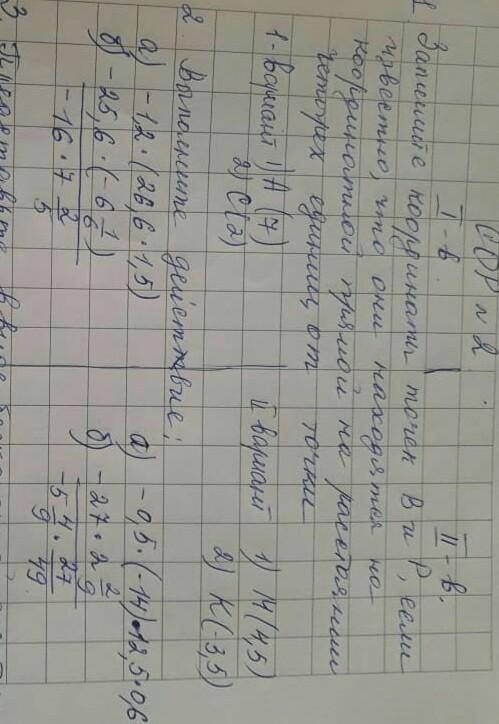 СОР № 2.
I - в. II - в.
1. Запишите координаты точек В и Р, если
известно, что они находятся на
координатной прямой на расстоянии
четырех единиц от точки
1-вариант 1) А (7) II вариант 1) М(4,5)
2) С(2) 2) К(-3,5)
2. Выполните действие:
а) -1,2 · (26,6 · 1,5) а) -0,5 · (-14) · 12,5 · 0,6
б) -25,6 · (-6 1/6) / -16 · 7 2/5 б) -27 · 2 2/9 / -5 4/9 · 27/49
3. Представьте в виде